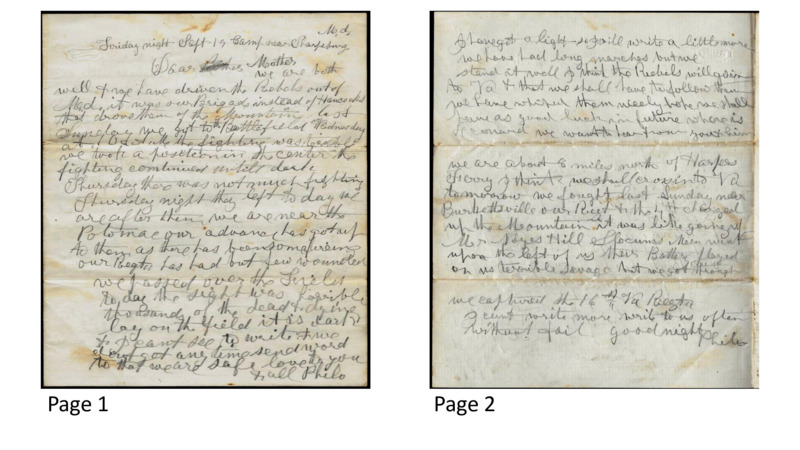 Md,
Friday night Sept 19 Camp near Sharpsburg
Dear Mother
we are both
well & we have driven the Rebels out of
Md, it was our Brigade instead of Hancocks
that drove them of the Mountain last
Sunday we got to the Battlefield Wednesday
at 10 the fighting was terrible
we took a position in the center the
fighting continued until dark
Thursday there was not much fighting
Thursday night they left to day we
are after them, we are near the
Potomac our advance has got up
to them as there has been some firing
our Regts has had but few wounded
we passed over the field
to day the sight was horrible
thousands of the dead & dying
lay on the field it is dark
& I cant see to write & we
dont get any time send word
to that we are safe love to you
& all Philo
I have got a light so I will write a little more
we have had long marches but we
stand it well I think the Rebels will go in
to Va & that we shall have to follow them
we have whiped them nicely hope we shall
have as good luck in future where is
we want to hear from
we are about 8 miles north of Harpers
Ferry I think we shall cross into Va
tomorrow we fought last Sunday near
Burkettsville our Regt & the 4th charged
up the Mountain it was like going up
Mr Hill Slocums Men went
upon the left of us their Battery played
on us terrible savage but we got through
we captured the 16th Va Regt
I cant write more write to us often
without fail good night
Philo
Page 1
Page 2